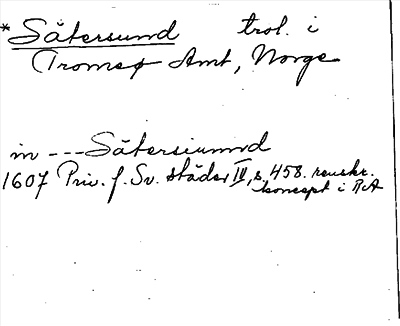 *Såtersund trol. i
Tromsø Amt, Norge
in --- Såtersiunnd
1607 Priv. f. Sv. städer IV, s. 458. renskr.
koncept i RA